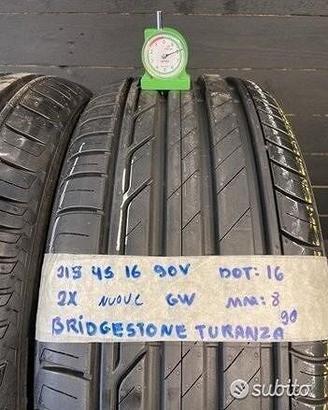 215 45 16 90V DOT: 16
2X NUOVE GW MM: 8
BRIDGESTONE TURANZA 90
subito